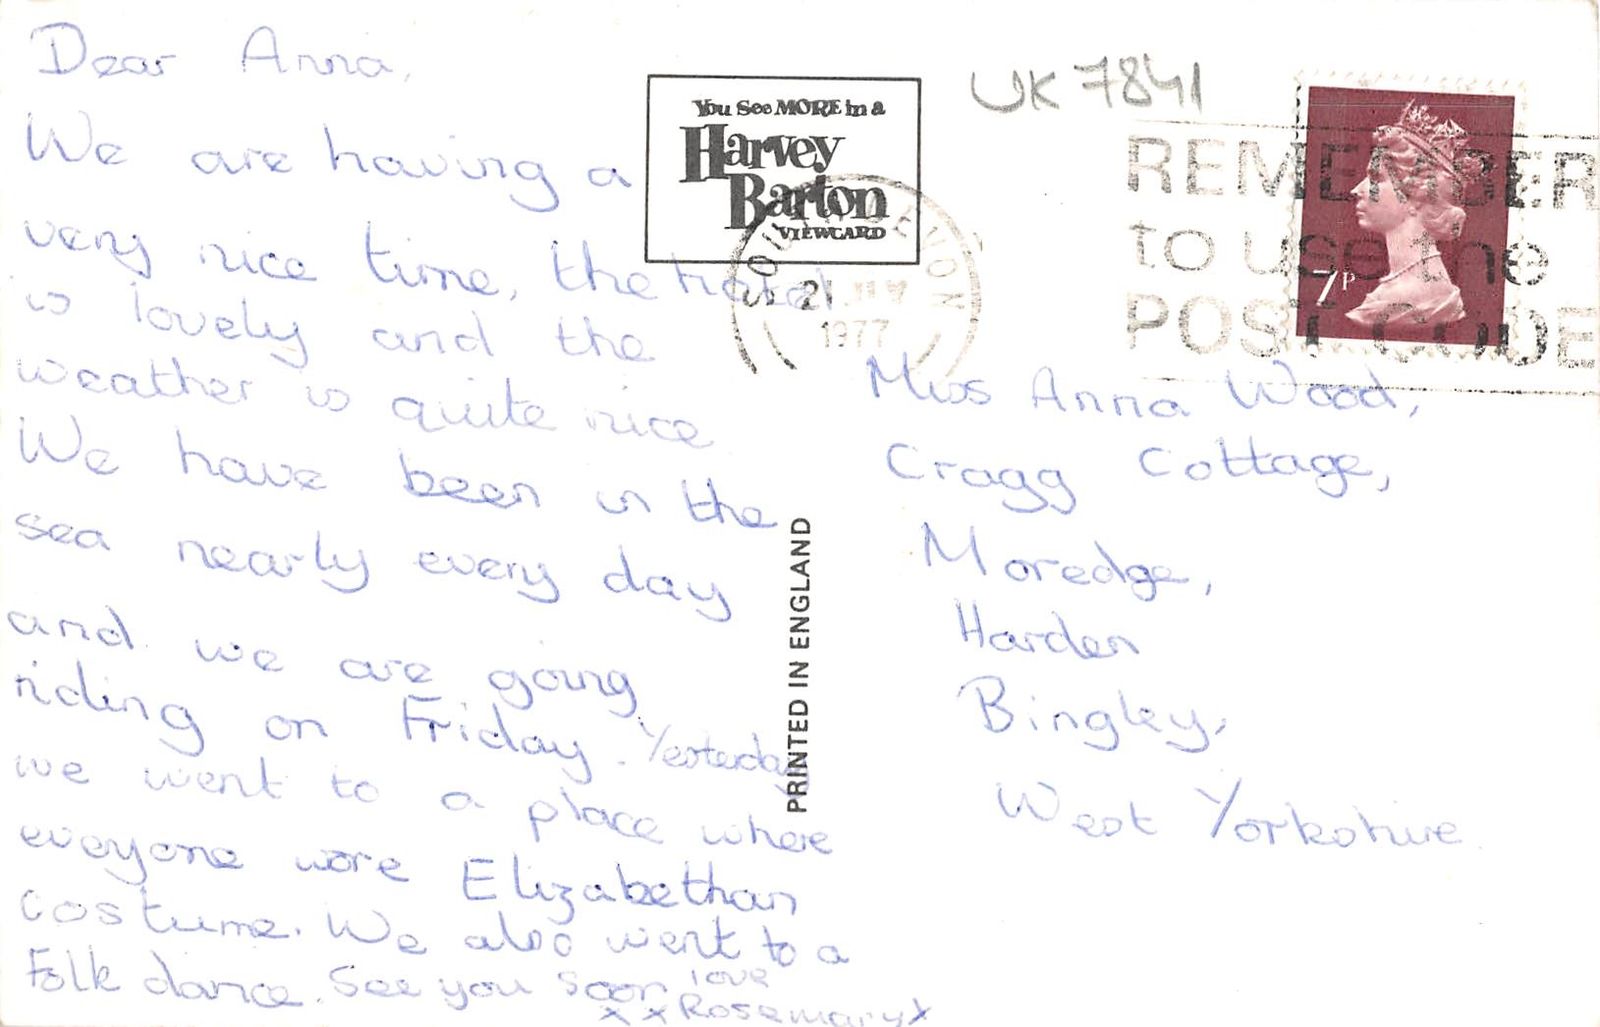 Dear Anna,
We are having a
very nice time, the hotel
is lovely and the
weather is quite nice
We have been in the
sea nearly every day
and we are going
riding on Friday. Yesterday
we went to a place where
everyone wore Elizabethan
costume. We also went to a
Folk dance. See you soon love
x x Rosemary x
You See MORE in a
Harvey
Barton
VIEWCARD
PRINTED IN ENGLAND
UK 7841
DEVON
21
1977
REMEMBER
to use the
POST CODE
7P
Miss Anna Wood,
Cragg Cottage,
Moredge,
Harden
Bingley,
West Yorkshire